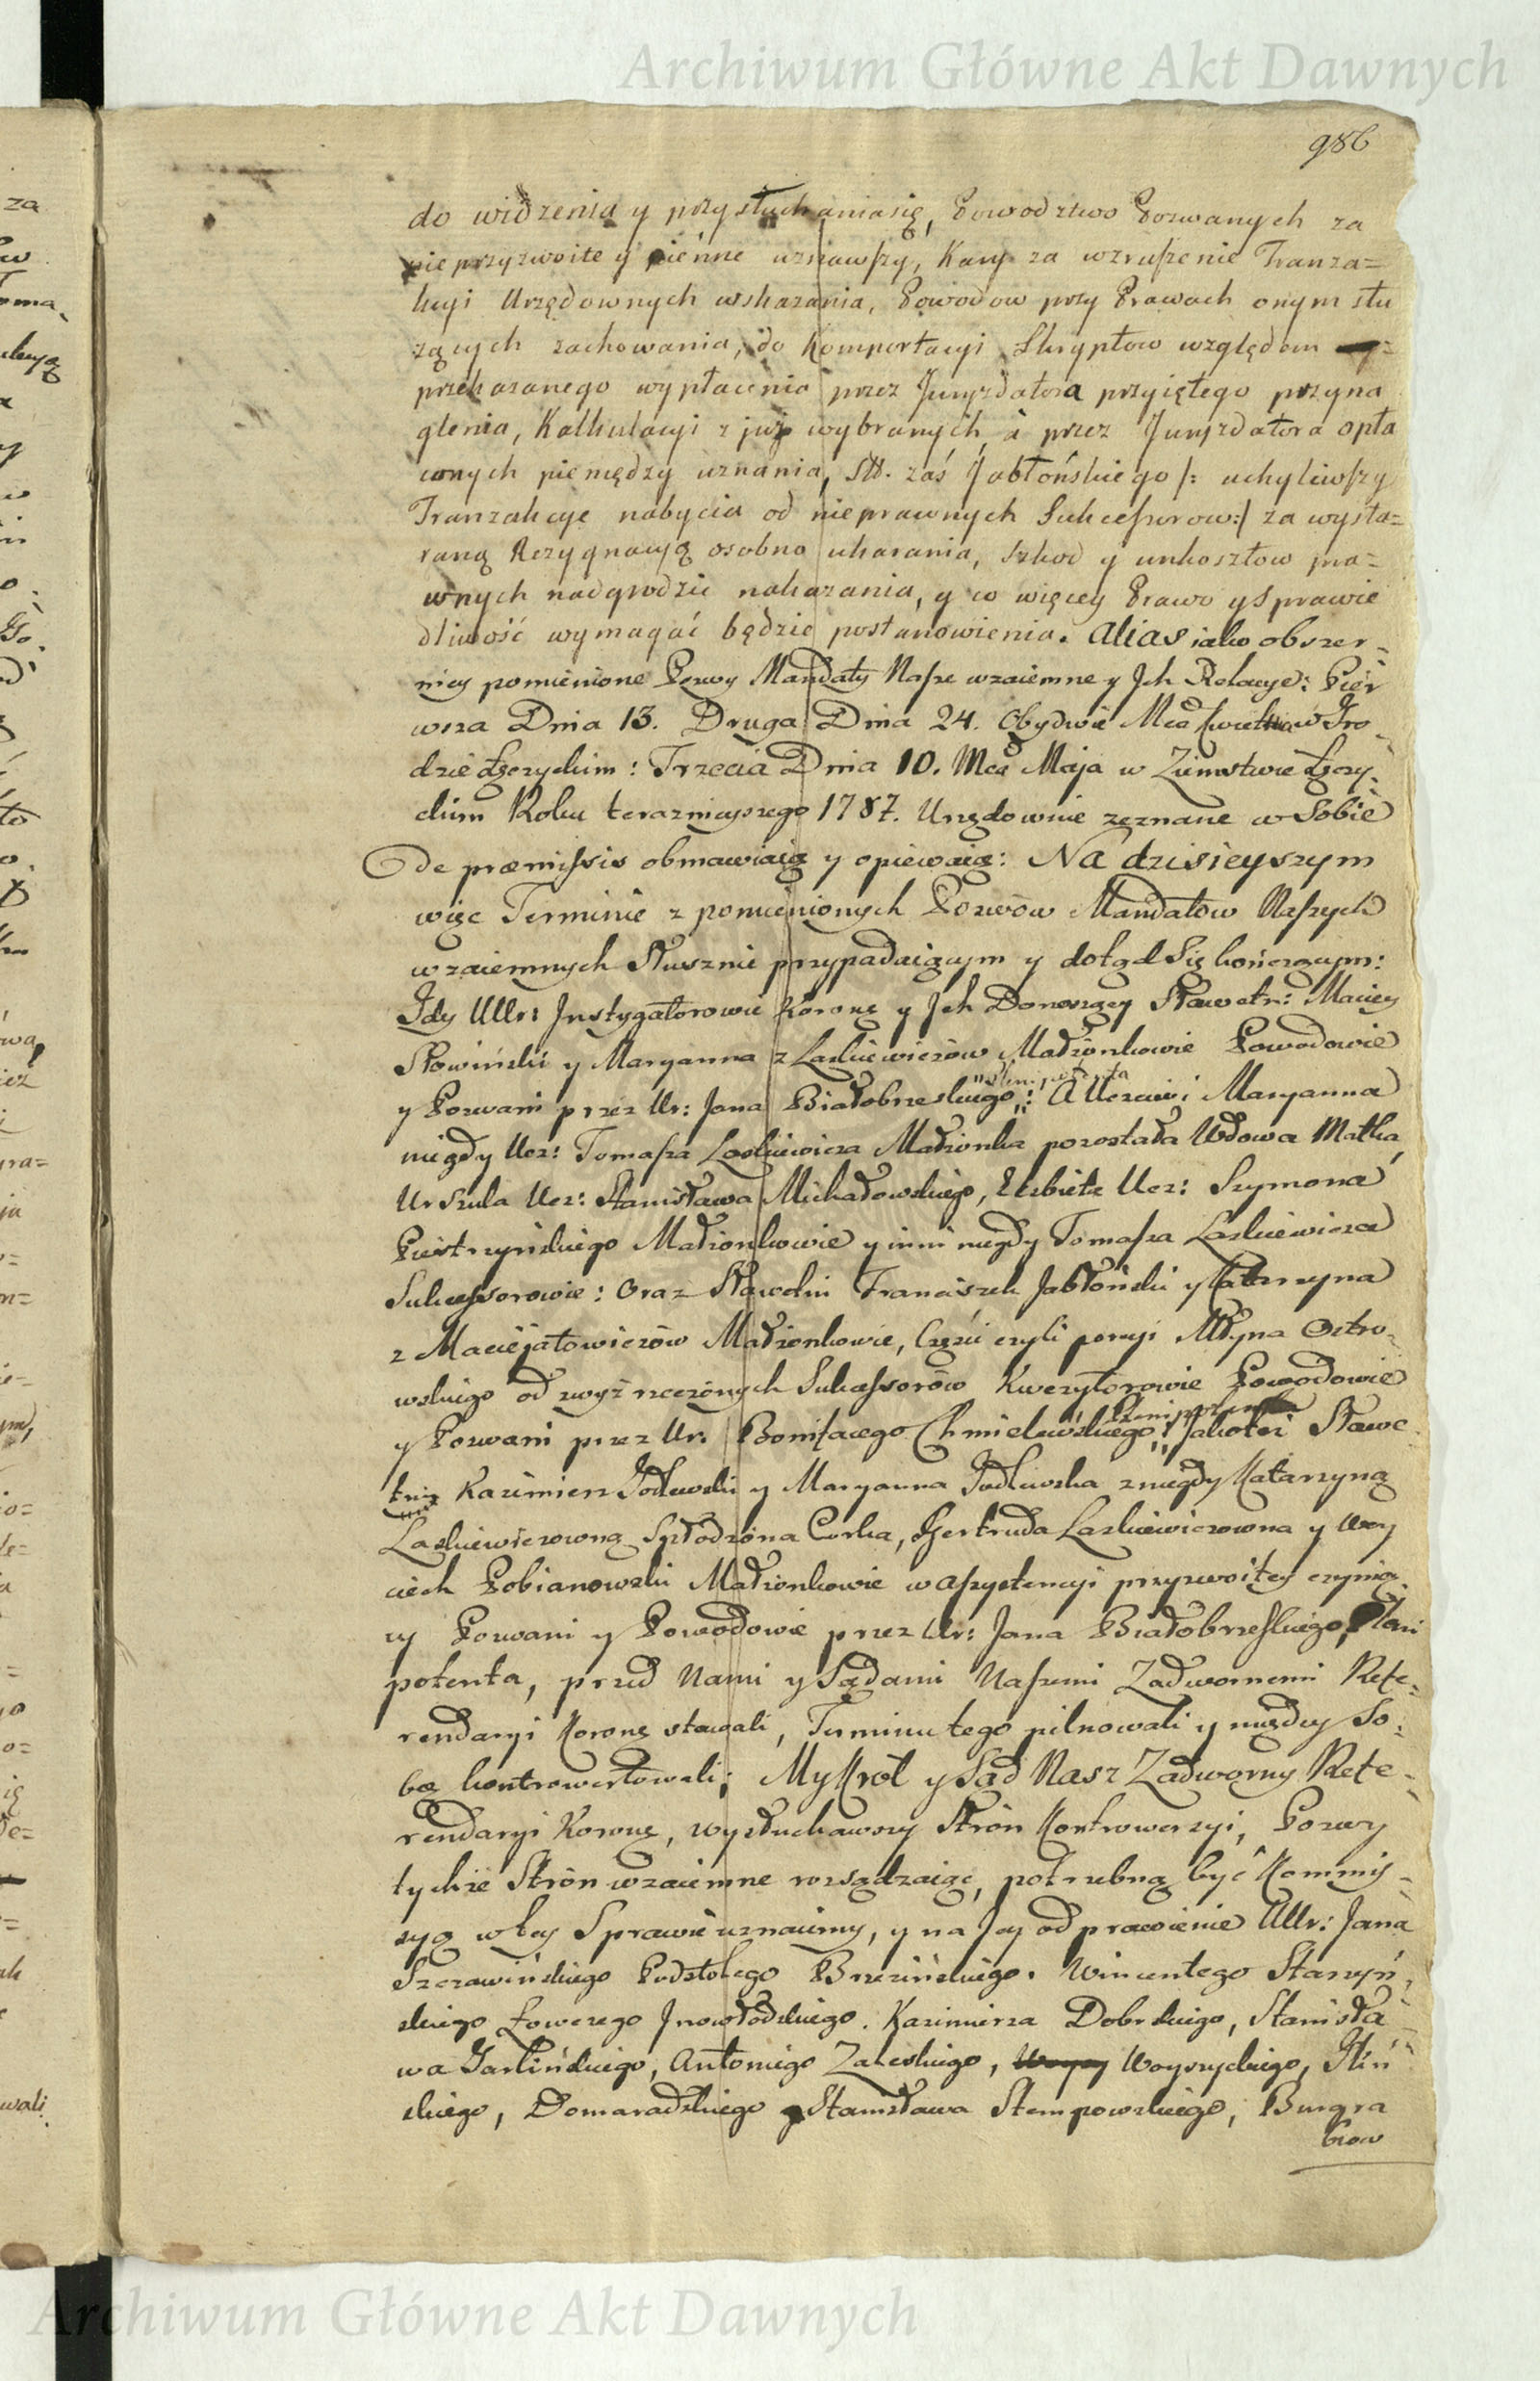 Archiwum Główne Akt Dawnych
986
do widzenia y przysłuchania się, Powodztwo Pozwanych za
nieprzyzwoite y pienne uznawszy, Kary za wzruszenie Tranza=
kcyi Urzędownych wskazania, Powodow przy Prawach onym słu
zących zachowania, do Komportacyi Skryptow względem
przekazanego wypłacenia przez Juryzdatora przyiętego przyna
glenia, Kalkulacyi z już wybranych, a przez Juryzdatora opła
conych pieniędzy uznania, Sł. zaś Jabłońskiego /: uchyliwszy
Tranzakcye nabycia od nieprawnych Sukcessorow:/ za wysta=
raną Rezygnacyą osobno ukarania, Szkod y unkosztow pra=
wnych nadgrodzić nakazania, y co więcey Prawo y Sprawie
dliwość wymagać będzie postanowienia. Alias iako obszer=
niey pomienione Pozwy Mandaty Nasze wzaiemne y Jch Relacye: Pier
wsza Dnia 13. Druga Dnia 24. Obydwie Mca Kwietnia w Gro
dzie Łęczyckim: Trzecia Dnia 10. Mca Maja w Ziemstwie Łęczy=
ckim Roku terazniejszego 1787. Urzędownie zeznane w Sobie
de præmissis obmawiaią y opiewaią: Na dzisieyszym
więc Terminie z pomienionych Pozwów Mandatow Naszych
wzaiemnych Słusznie przypadaiącym y dotąd się kończącym:
Gdy Ur: Jnstygatorowie Koronę y Jch Donoszący Sławetn: Maciey
Słowiński y Maryanna z Laskiewiczów Małżonkowie Powodowie
y Pozwani przez Ur: Jana Białobrzeskiego „Plenipotenta„: A Uczciwi Maryanna
niegdy Ucz: Tomasza Laskiewicza Małżonka pozostała Wdowa Matka,
Urszula Ucz: Stanisława Michałowskiego, Elzbieta Ucz: Szymona
Piestrzyńskiego Małżonkowie y inni niegdy Tomasza Laskiewicza
Sukcessorowie: Oraz Sławetni Franciszek Jabłoński y Katarzyna
z Maciejatowiczów Małżonkowie, Części czyli porcyi Młyna Ostro=
wskiego od zwyż rzeczonych Sukcessorów Kwerytorowie Powodowie
y Pozwani przez Ur. Bonifacego Chmielewskiego „Plenipotenta„: Jakoteż Sławe
tni Kazimierz Godlewski y Maryanna Godlewska z niegdy Katarzyną
Laskiewiczowną Spłodzona Corka, Gertruda Laskiewiczowna y Woy
ciech Pobianowski Małżonkowie w assystencyi przyzwoitey czynią
cy Pozwani y Powodowie przez Ur: Jana Białobrzeskiego, Pleni
potenta, przed Nami y Sądami Naszemi Zadwornemi Refe=
rendaryi Koronę stawali, Terminu tego pilnowali y między So=
bą kontrowertowali; My Krol y Sąd Nasz Zadworny Refe=
rendaryi Koronę, wysłuchawszy Strón Kontrowerzyi, Pozwy
tychże Strón wzaiemne rozsądzaiąc, potrzebną być Kommis=
syą w tey Sprawie uznaiemy, y na Jey odprawienie Ur: Jana
Szczawińskiego Podstolego Brzezińskiego. Wincentego Starzyń=
skiego Łowczego Jnowłodzkiego. Kazimierza Dobrskiego, Stanisła=
wa Garlińskiego, Antoniego Zaleskiego, Woyszyckiego, Gliń=
skiego, Domaradzkiego y Stanisława Stempowskiego, Burgra
biow
Archiwum Główne Akt Dawnych